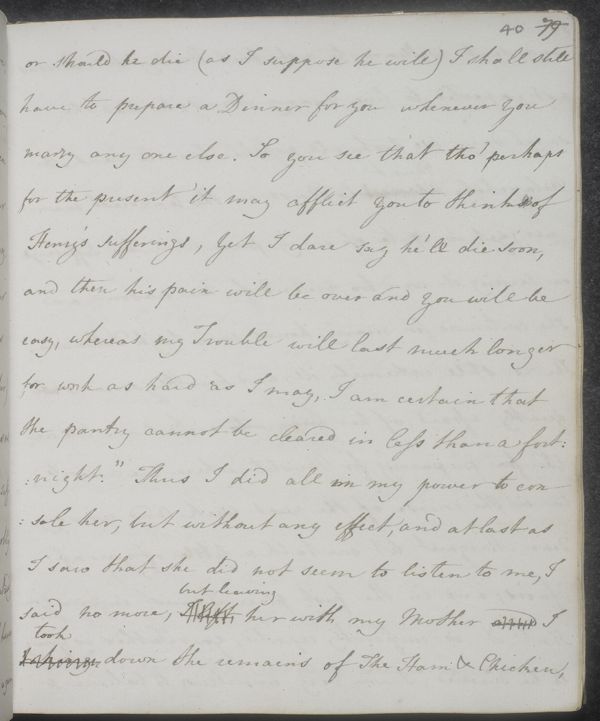 40 79
or should he die (as I suppose he will) I shall still
have to prepare a Dinner for you whenever you
marry any one else. So you see that tho' perhaps
for the present it may afflict you to think of
Henry's sufferings, Yet I dare say he'll die soon,
and then his pain will be over and you will be
easy, whereas my Trouble will last much longer
for work as hard as I may, I am certain that
the pantry cannot be cleared in less than a fort:
:night." Thus I did all in my power to con
:sole her, but without any effect, and at last as
I saw that she did not seem to listen to me, I
but leaving
said no more, I left her with my Mother and I
took
taking down the remains of The Ham & Chicken,